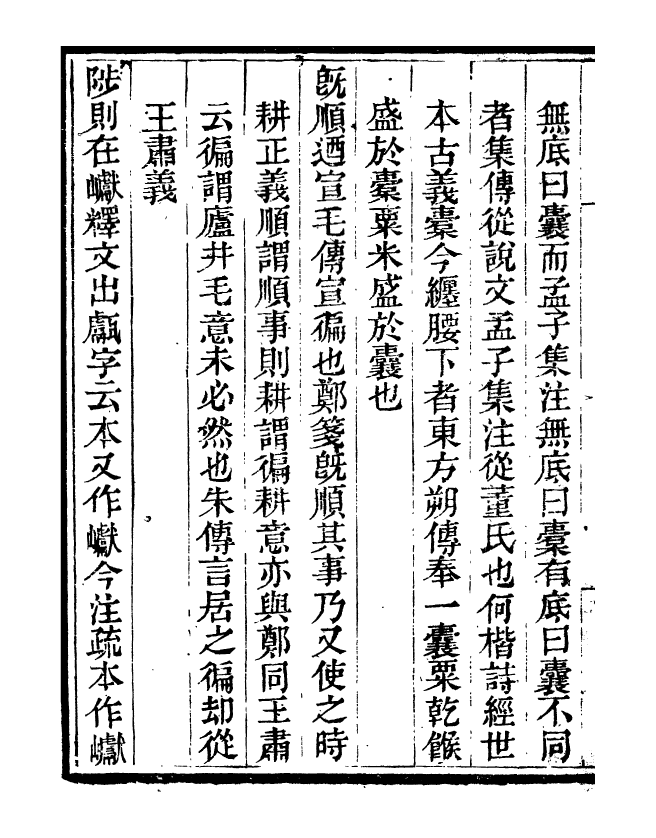 無底曰囊而孟子集注無底曰橐有底曰囊不同
者集傳從說文孟子集注從董氏也何楷詩經世
本古義橐今纏腰下者東方朔傳奉一囊粟乾餱
盛於橐粟米盛於囊也
旣順迺宣毛傳宣徧也鄭箋旣順其事乃又使之時
耕正義順謂順事則耕謂徧耕意亦與鄭同王肅
云徧謂廬井毛意未必然也朱傳言居之徧却從
王肅義
陟則在巘釋文出甗字云本又作巘今注疏本作巘